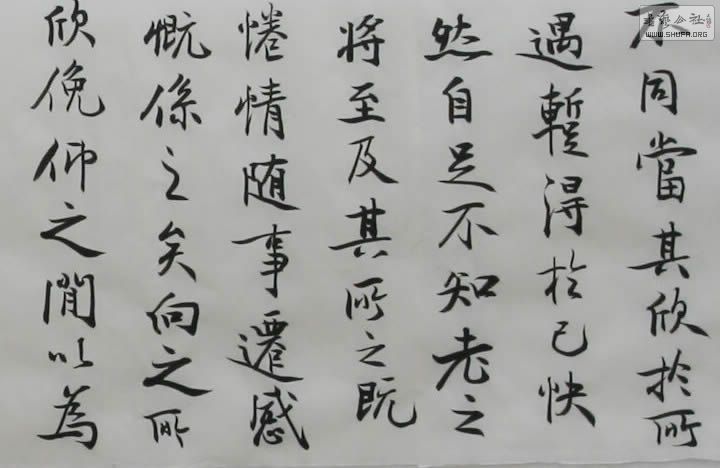 不同當其欣於所
遇暫得於己快
然自足不知老之
將至及其所之既
惓情随事遷感
慨係之矣向之所
欣俛仰之間以為
書藝公社
WWW.SHUFA.ORG